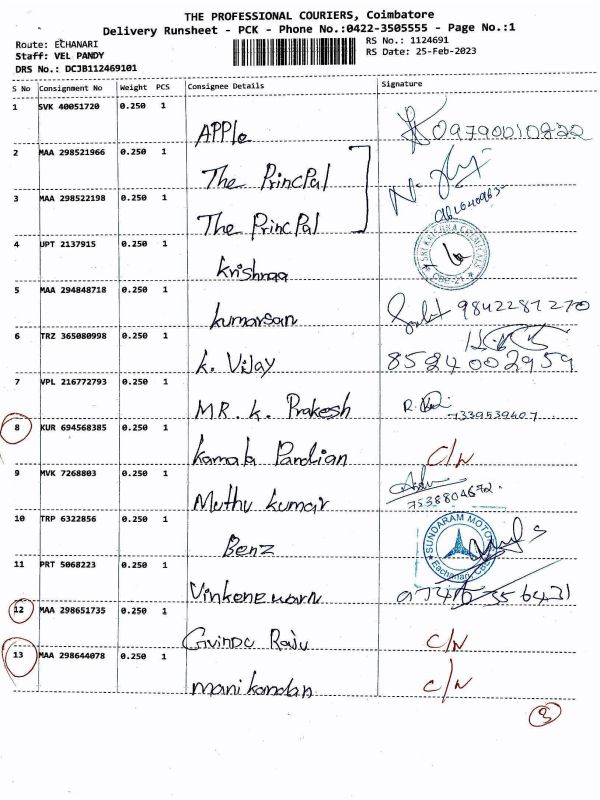 THE PROFESSIONAL COURIERS, Coimbatore
Delivery Runsheet - PCK - Phone No.:0422-3505555 - Page No.:1
Route: ECHANARI
RS No.: 1124691
Staff: VEL PANDY
RS Date: 25-Feb-2023
DRS No.: DCJB112469101
S No Consignment No Weight PCS Consignee Details Signature
1 SVK 40051720 0.250 1
APPle 09790010822
2 MAA 298521966 0.250 1
The PrincPal
3 MAA 298522198 0.250 1
The PrincPal
4 UPT 2137915 0.250 1
Krishnaa
SRI KRISHNA
CBE-21
5 MAA 294848718 0.250 1
kumarsan 9842287270
6 TRZ 365080998 0.250 1
K. Vijay 8524002959
7 VPL 216772793 0.250 1
MR. K. Prakesh 7339539607
8 KUR 694568385 0.250 1
Kamala Pandian C/N
9 MVK 7268803 0.250 1
Muthu kumar 7538804672
10 TRP 6322856 0.250 1
Benz
SUNDARAM MOTORS
Eachanari, CBE
11 PRT 5068223 0.250 1
12 MAA 298651735 0.250 1
Govindo Raju C/N
13 MAA 298644078 0.250 1
manikandan C/N